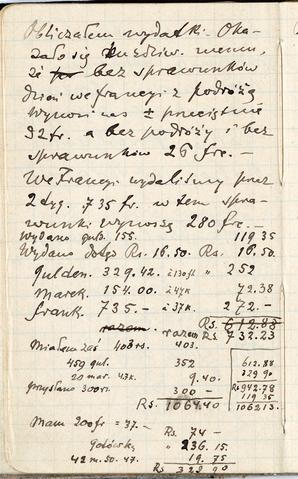 Obliczałem wydatki. Oka-
zało się ku zdziw. memu,
że bez sprawunków
dzień we francyi z podróżą
wynosi nas ± przeciętnie
32 fr. a bez podróży i bez
sprawunków 26 frc. —
We Francyi wydaliśmy przez
2 tyg. 735 fr. w tem spra-
wunki wynoszą 280 frc. —
Wydano gub. 155. 119 35
Wydano dotąd Rs. 16.50. Rs. 16.50.
gulden. 329.42. à 130 fl " 252
Marek. 154.00 à 47 k 72.38
frank. 735.— à 37 k. 272.—
razem. razem Rs. 612.88
Rs. 732.23
Miałem zaś 403 rs. 403.
459 gul. 352
20 mar. 43 k. 9.40.
przysłano 300 rs. 300 —
Rs. 1064.40
612.88
329 90
Rs 942.78
119 35
1062 13.
Mam 200 fr = 37.—
Rs. 74 —
Gotówką " 236.15.
42 m. 50. 47. 19.75
Rs. 329 90